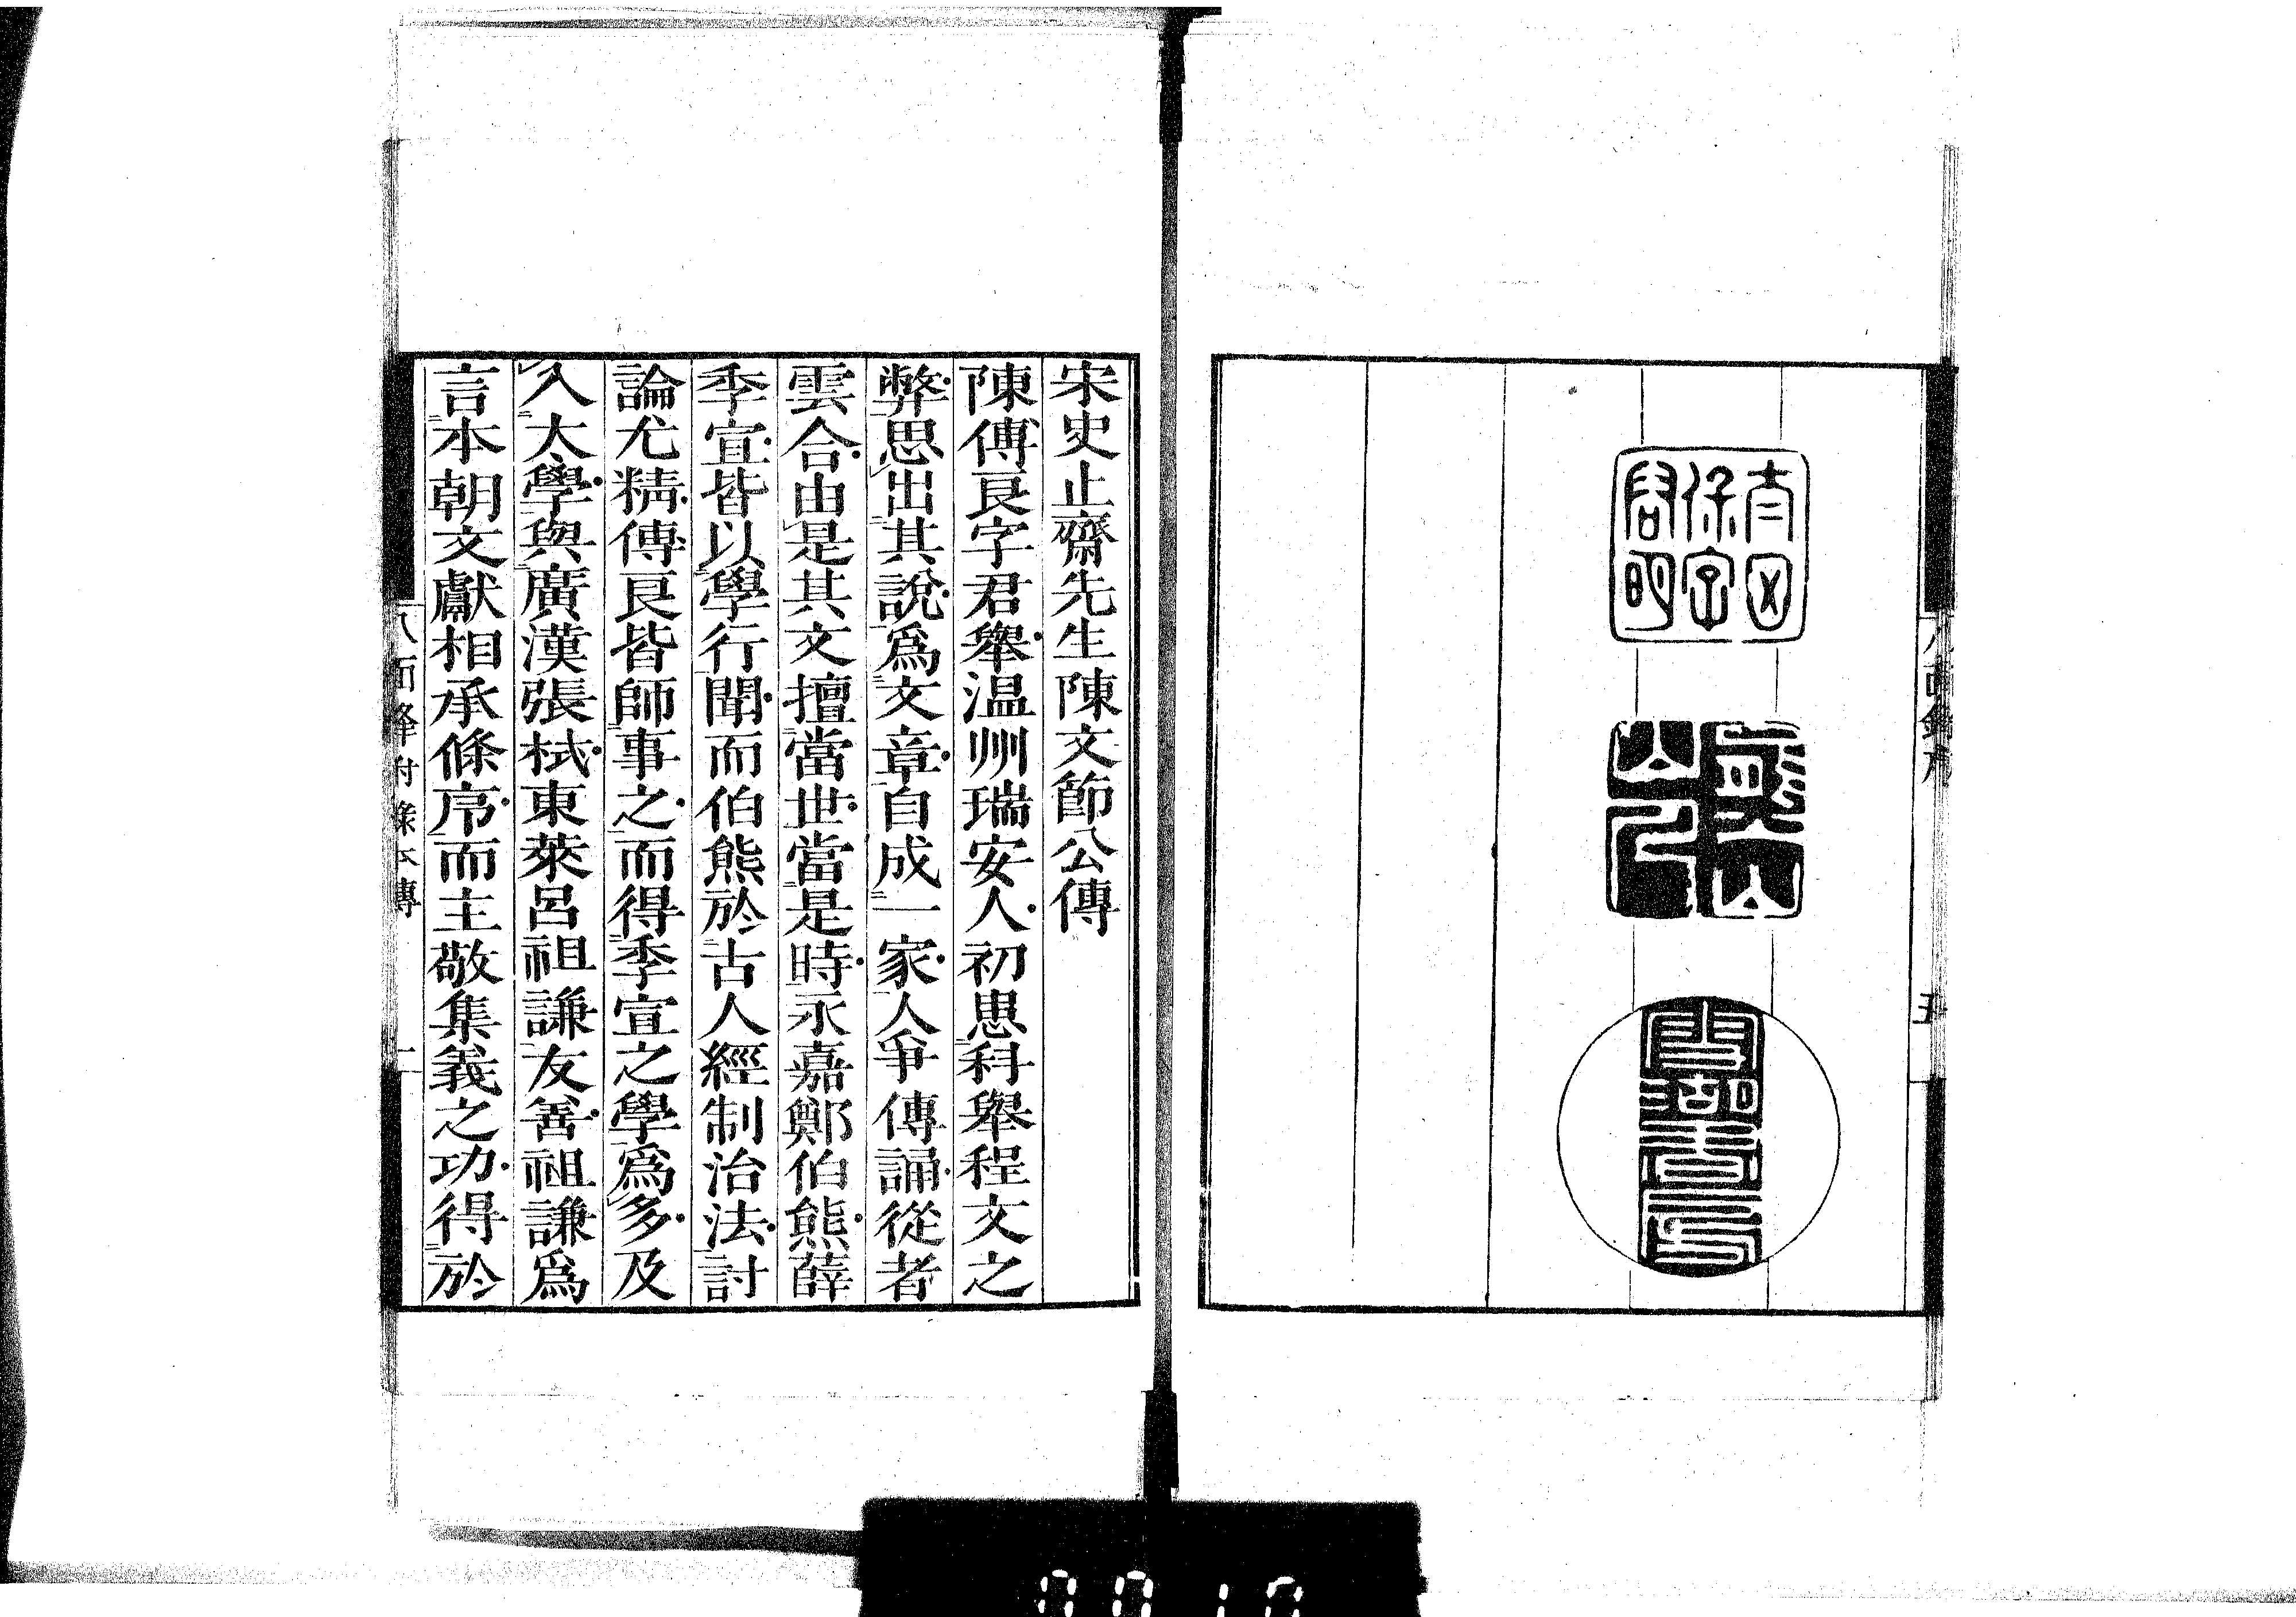 五
宋史止齋先生陳文節公傳
陳傅良字君舉温州瑞安人初患科舉程文之
弊思出其說爲文章自成一家人爭傳誦從者
雲合由是其文擅當世當是時永嘉鄭伯熊薛
季宣皆以學行聞而伯熊於古人經制治法討
論尤精傅良皆師事之而得季宣之學爲多及
入太學與廣漢張栻東萊呂祖謙友善祖謙爲
言本朝文獻相承條序而主敬集義之功得於
八面鋒附錄本傳
一
0010